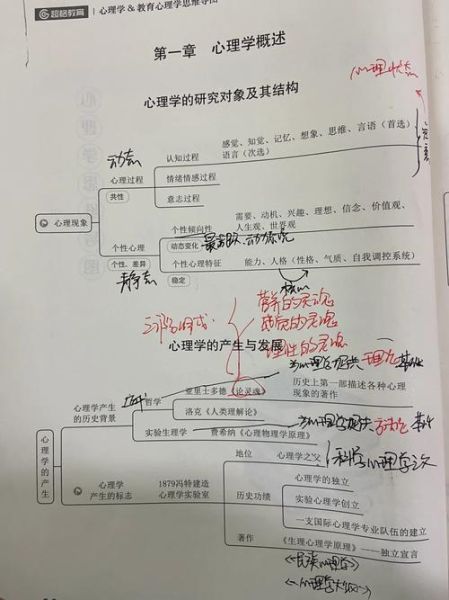 超格教育 心理学&教育心理学思维导图
第一章 心理学概述
心理学的研究对象及其结构
心理状态
动态
感觉、知觉、记忆、想象、思维、言语（首选）
认知过程
语言（次选）
心理过程
情绪情感过程
共性
意志过程
心理现象
需要、动机、兴趣、理想、信念、价值观、
个性倾向性
人生观、世界观
个性心理
动态变化
个性、差异
个性心理特征
能力、人格（性格、气质、自我调控系统）
静态
稳定
核心
营养的灵魂
感觉的灵魂
理性的灵魂
心理学的产生与发展
为心理学提供理论基础
亚里士多德《论灵魂》
历史上第一部描述各种心理
现象的著作
哲学
心理学产生
的历史背景
洛克《人类理解论》
为心理学提供方法论基础
实验生理学
费希纳《心理物理学原理》
心理学的产生
地位
心理学之父
科学心理学之父
心理学
产生的标志
1879冯特建造
心理学实验室
历史功绩
心理学的独立
实验心理学创立
一支国际心理学专业队伍的建立
著作
《生理心理学原理》——独立宣言
《民族心理学》
《心理学大纲》